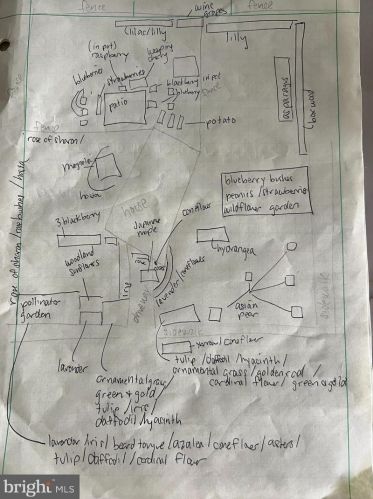 fence
wine
grapes
fence
lilac/lilly
lilly
(in pot)
raspberry
weeping
cherry
blueberries
strawberries
blackberry
in pot
blueberry
patio
asparagus
potato
fence
rose of sharon/
magnolia
hosta
house
blueberry bushes
peonies/strawberries
wildflower garden
rose of sharon/rose bushes/hosta
3 blackberry
Japanese
maple
coneflower
woodland
sunflowers
hydrangea
iris
driveway
lavender/coneflowers
pollinator
garden
asian
pear
sidewalk
sidewalk
yarrow/coneflower
lavender
tulip/daffodil/hyacinth/
ornamental grass/goldenrod/
cardinal flower/green & gold
ornamental grass
green & gold
tulip/iris
daffodil/hyacinth
lavender/iris/beard tongue/azalea/coneflower/asters/
tulip/daffodil/cardinal flower
bright MLS